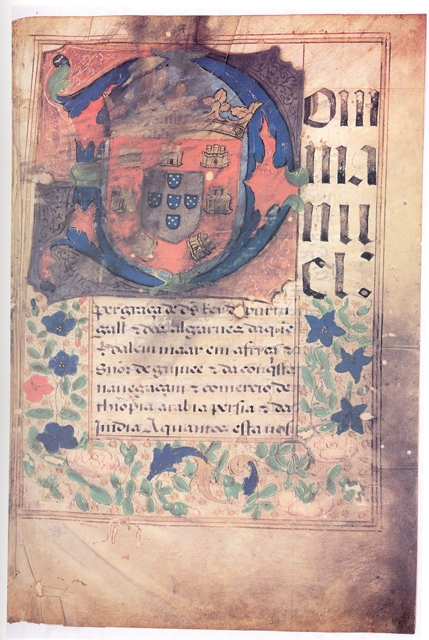 Dom
ma
nu
el:
per graça de ds Rey de purtu
gall & dos algarues daque
& dalem maar em africa &
Sñor de guinee & da conqsta
nauegaçam & comercio de
thiopia arabia persia & da
India A quantos esta nosa